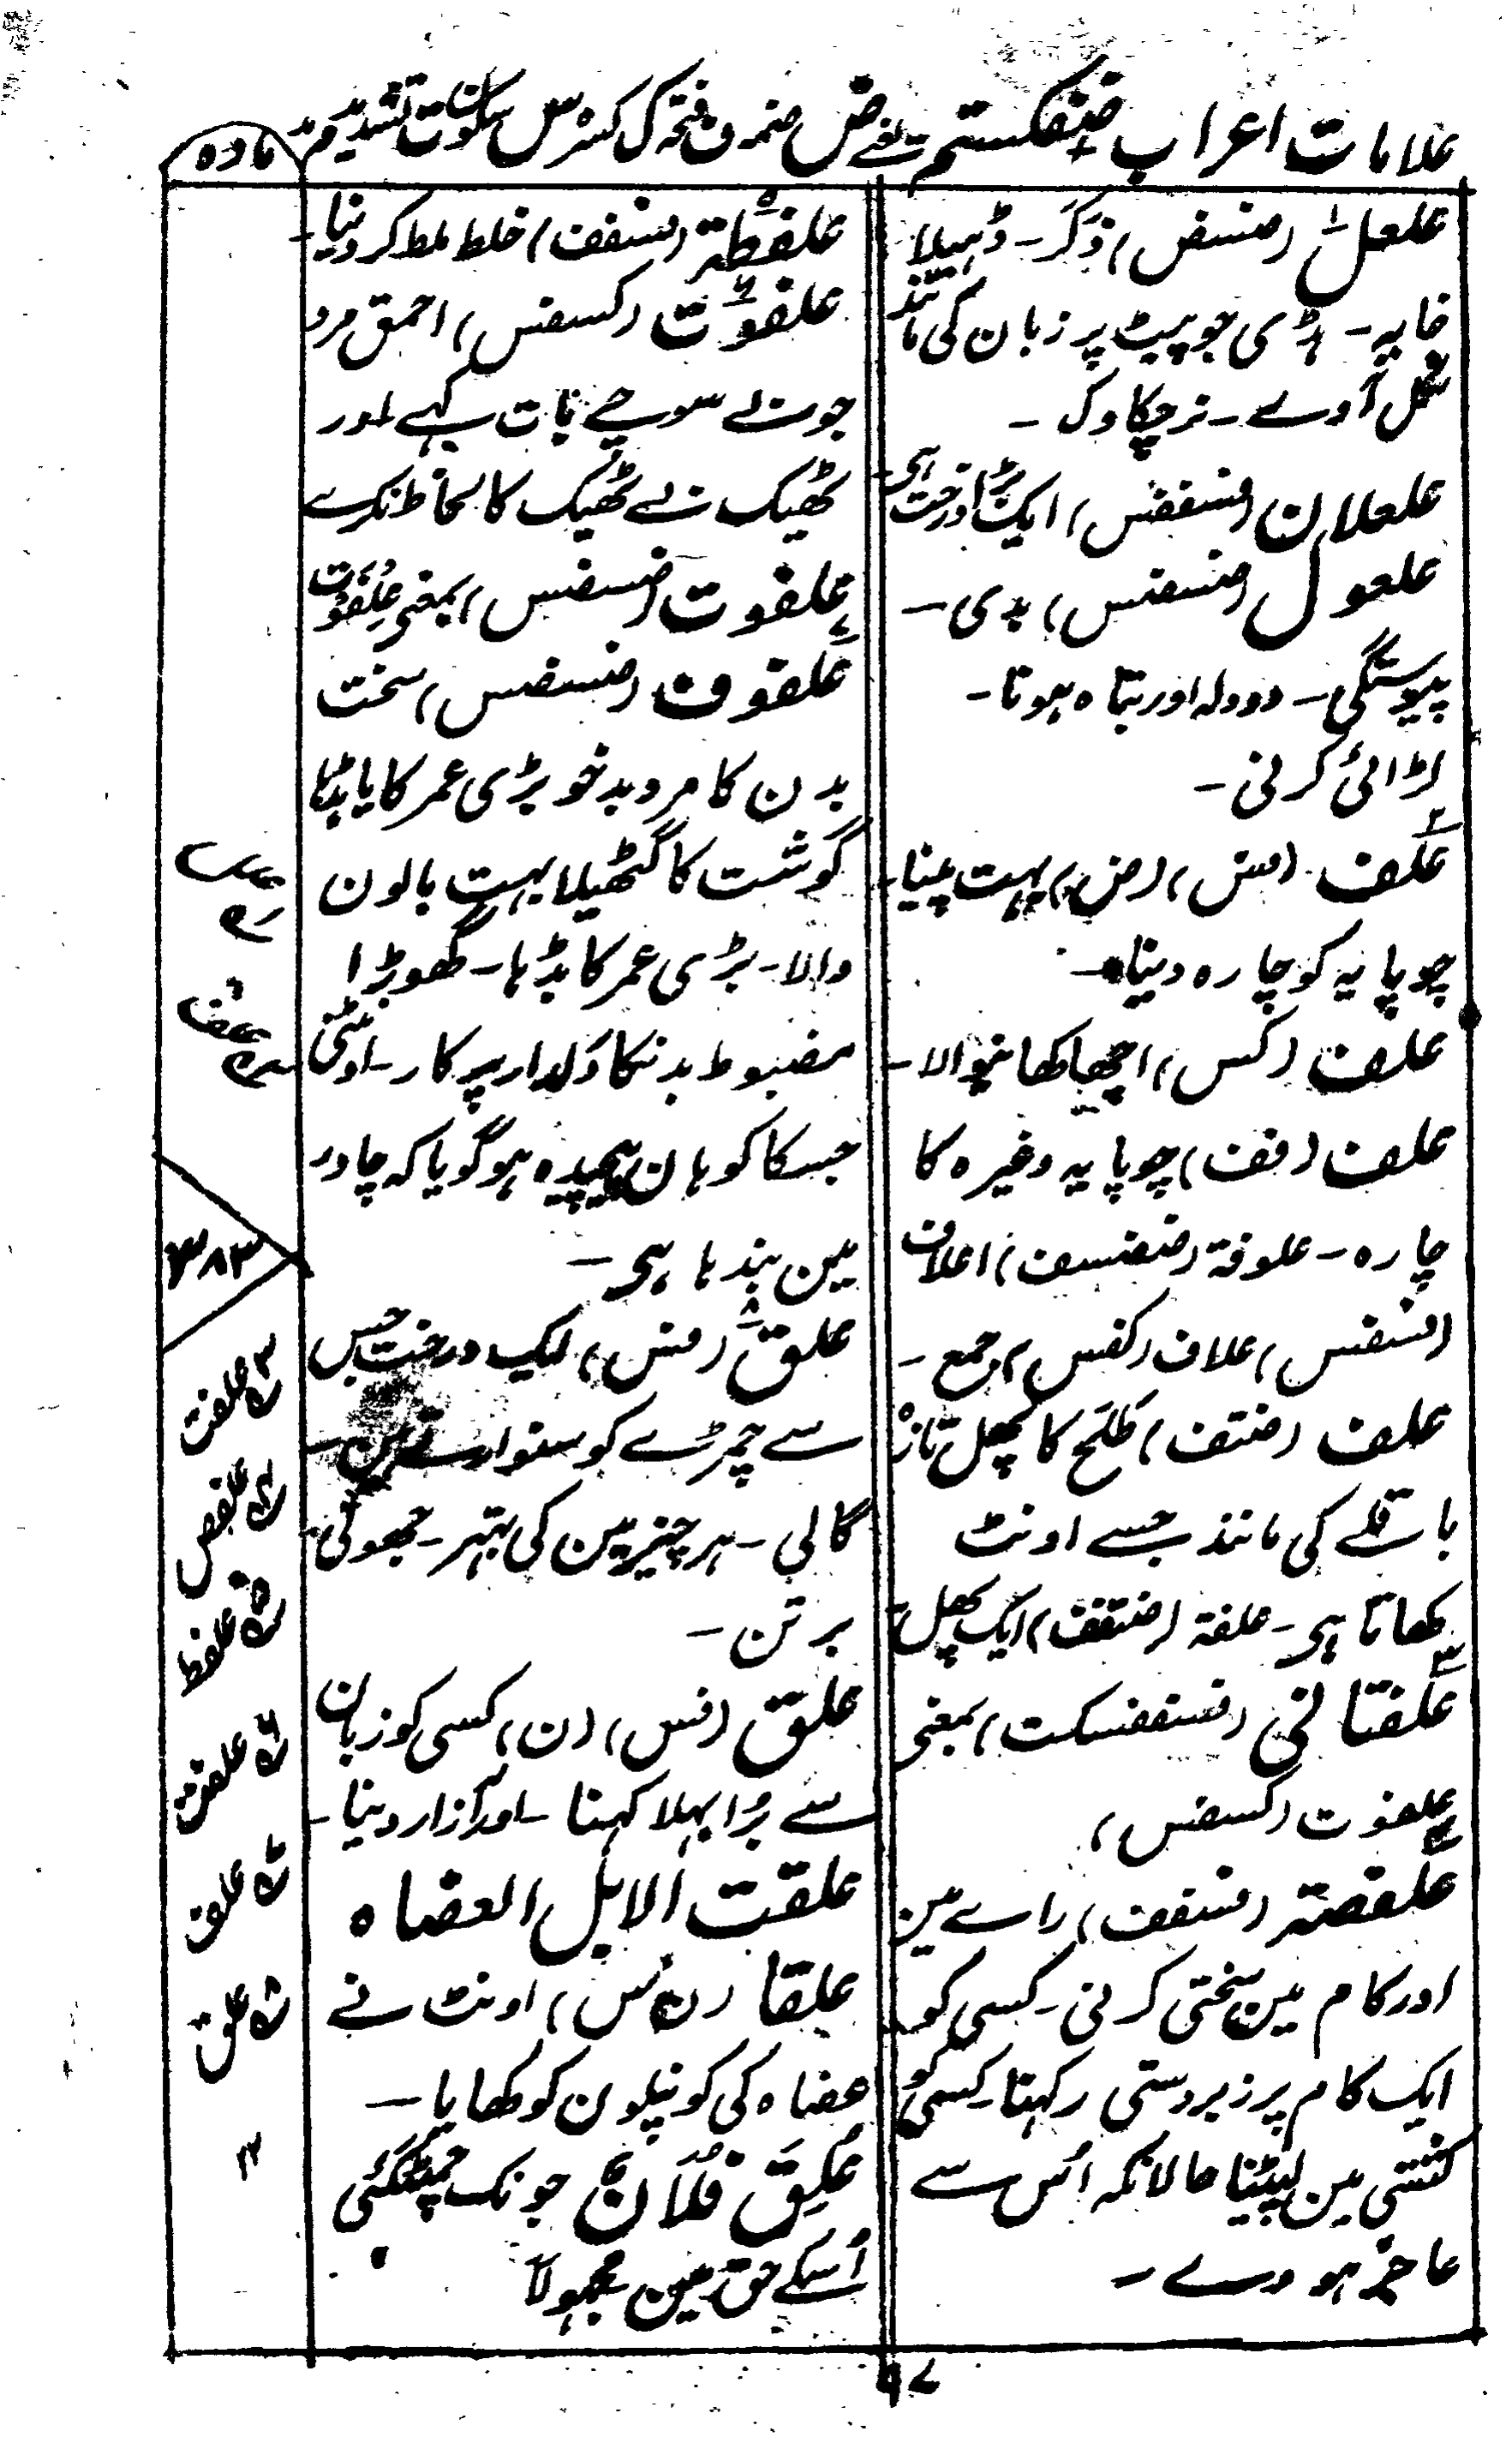 علامات اعراب ضفکستم یعنے ض ضمہ ف فتحہ ک کسرہ س سکون ت تشدید م مد
مادہ
علعل (ضسض) ذَکَر۔ ڈہیلا
خایہ۔ ہڈی جو پیٹ پر زبان کی مانند
نکل آوے۔ نر چکاوک۔
علعلان (فسففس) ایک بڑا درخت ہی
علعول (ضسضس) بدی۔
پیوستگی۔ دودلہ اور تباہ ہونا۔
لڑائی کرنی۔
عَلف (فس) (ض) بہت پینا۔
چوپایہ کو چارہ دینا۔
علف (کس) اچھا کھانیوالا۔
علف (فف) چوپایہ وغیرہ کا
چارہ۔ علوفة (ضضسف) اعلاف
(فسفس) علاف (کفس) جمع۔
علف (ضتف) طَلَح کا پھل تازہ
باقلے کی مانند جسے اونٹ
کھاتا ہی۔ علفة (ضتفف) ایک پھل
عَلفتانی (فسففسکت) بمعنی
علفوت (کسفس)
عَلفصتہ (فسفف) راے مین
اور کام مین سختی کرنی۔ کسی کو
ایک کام پر زبردستی رکہنا۔ کسی کو
کشتی مین لپیٹنا حالانکہ اُس سے
عاجز ہووے۔
علفطتہ (فسفف) خلط ملط کر دینا۔
علفوت (کسفس) احمق مرد
جو بے سوچے بات کہے اور
ٹھیک بے ٹھیک کا لحاظ نکرے
علفوت (ضسضس) بمعنی عِلفَوت
عَلفوف (ضسضس) سخت
بدن کا مرد بدخو بڑی عمر کا یا بڈہا
گوشت کا گٹھیلا بہت بالون
والا۔ بڑی عمر کا بڈہا۔ گھوڑا
مضبوط بدنکا دَلدار پرکار۔ اونٹنی
جسکا کوہان پیچیدہ ہو گویا کہ چادر
مین بندہا ہی۔
علق (فس) ایک درخت جس
سے چمڑے کو سنوارتے ہین۔
گالی۔ ہر چیز مین کی بہتر۔ جھولی
برتن۔
علق (فس) (ن) کسی کو زبان
سے بُرا بہلا کہنا۔ اور آزار دینا۔
علقت الابل العضاہ
علقا (ن س) اونٹ نے
عضاہ کی کونپلون کو کھایا۔
عُلِقَ فُلَانٌ جونک چمٹ گئی
اُسکے حق مین مجہولاً
۳۸۳
۳ علفت
۴ علفص
۵ علفط
۷ علف
۸ علق
۱۲
۹۷